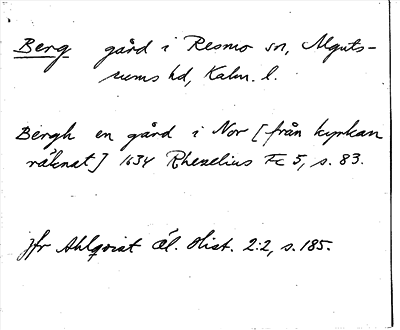 Berg gård i Resmo sn, Alguts-
rums hd, Kalm. l.
Bergh en gård i Nor [från kyrkan
räknat] 1634 Rhezelius Fc 5, s. 83.
jfr Ahlqvist Öl. Hist. 2:2, s. 185.